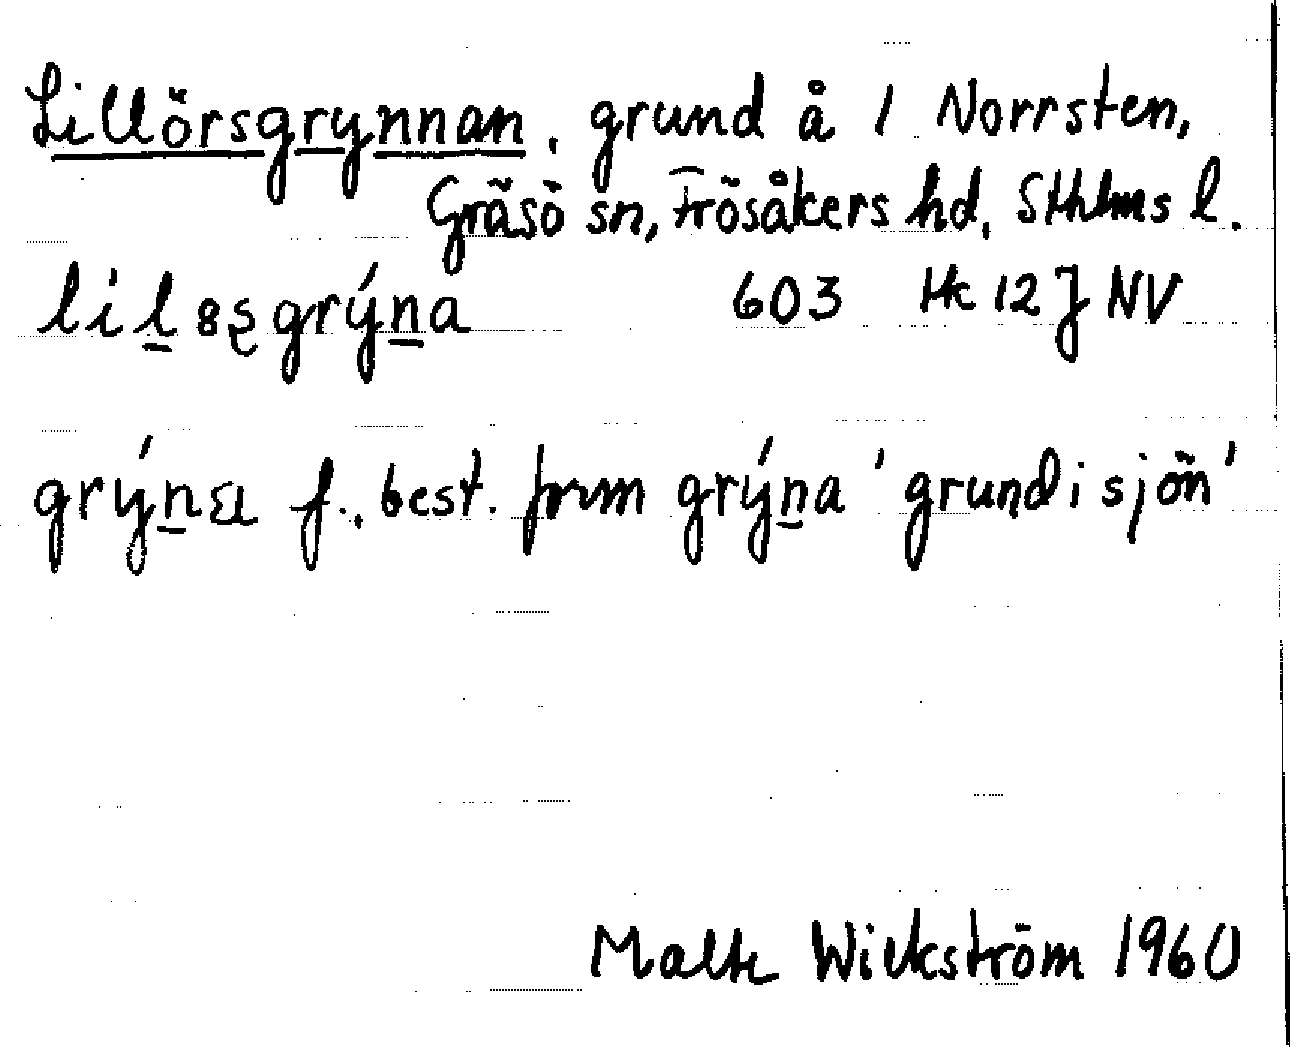 Lillörsgrynnan, grund å 1 Norrsten,
Gräsö sn, Frösåkers hd, Sthlms l.
603 Hk 12 J NV
f., best. form grýna 'grund i sjön'
Malte Wickström 1960